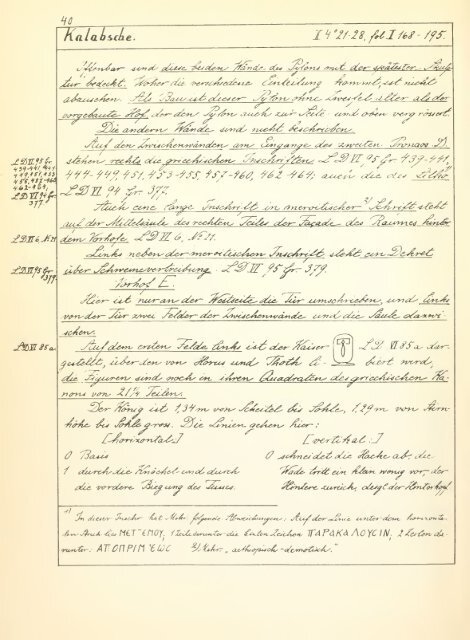 40
Kalabsche. I 4° 21-28, fol. I 168-195.
Offenbar sind diese beiden Wände des Pylons mit der spätesten Skulp-
tur bedeckt. Woher die verschiedene Einteilung kommt, ist nicht
abzusehen. Als Bau ist dieser Pylon ohne Zweifel älter als der
vorgebaute Hof, der den Pylon auch zur Seite und oben vergrössert.
Die andern Wände sind nicht beschrieben.
Auf den Zwischenwänden am Eingange des zweiten Pronaos D.
stehen rechts die griechischen Inschriften LD VI, 95 Gr. 439-441,
444-449, 451, 453-455, 457-460, 462-464; auch die des Silko
LD VI, 94 Gr. 377.
LD VI, 95 Gr.
439-441, 444-
449, 451, 453
455, 457-460
462-464,
LD VI, 94 Gr.
377.
Auch eine lange Inschrift in meroitischer Schrift steht
auf der Mittelsäule des rechten Teiles der Façade des Raumes hinter
dem Vorhofe LD VI, 6, No 21.
LD VI, 6, No 21
Links neben der meroitischen Inschrift steht ein Dekret
über Schweinevertreibung. LD VI, 95 Gr. 379.
LD VI, 95 Gr.
379.
Vorhof E.
Hier ist nur an der Westseite die Tür umschrieben, und links
von der Tür zwei Felder der Zwischenwände und die Säule dazwi-
schen.
LD VI, 85 a
Auf dem ersten Felde links ist der Kaiser LD VI, 85 a dar-
gestellt, über den von Horus und Thoth li- biert wird,
die Figuren sind noch in ihren Quadraten des griechischen Ka-
nons von 21¼ Teilen.
Der König ist 1,34 m von Scheitel bis Sohle, 1,29 m von Stirn-
höhe bis Sohle gross. Die Linien gehen hier:
[horizontal:] [vertikal:]
0 Basis 0 schneidet die Hacke ab, die
1 durch die Knöchel und durch Wade tritt ein klein wenig vor, der
die vordere Biegung des Fusses. Hintere zurück, desgl. der Hinterkopf
1) In dieser Inschr. hat Mehr. folgende Abweichungen: Auf der Linie unter dem horizonta-
len Strich lies ΜΕΤ᾽ΕΜΟΥ, 1 Zeile darunter die Zeichen ΠΑΡΑΚΑΛΟΥCΙΝ, 2 Zeilen da-
runter. ΑΠΟΠΡΙΜ᾽ΕѠC 2) Mehr. „aethiopisch-demotisch."